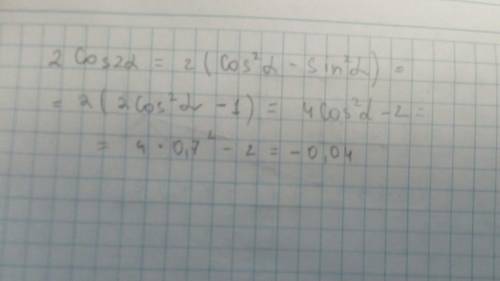 2 Cos2α = 2 (Cos²α - Sin²α) =
= 2 (2Cos²α - 1) = 4Cos²α - 2 =
= 4 · 0,7² - 2 = -0,04